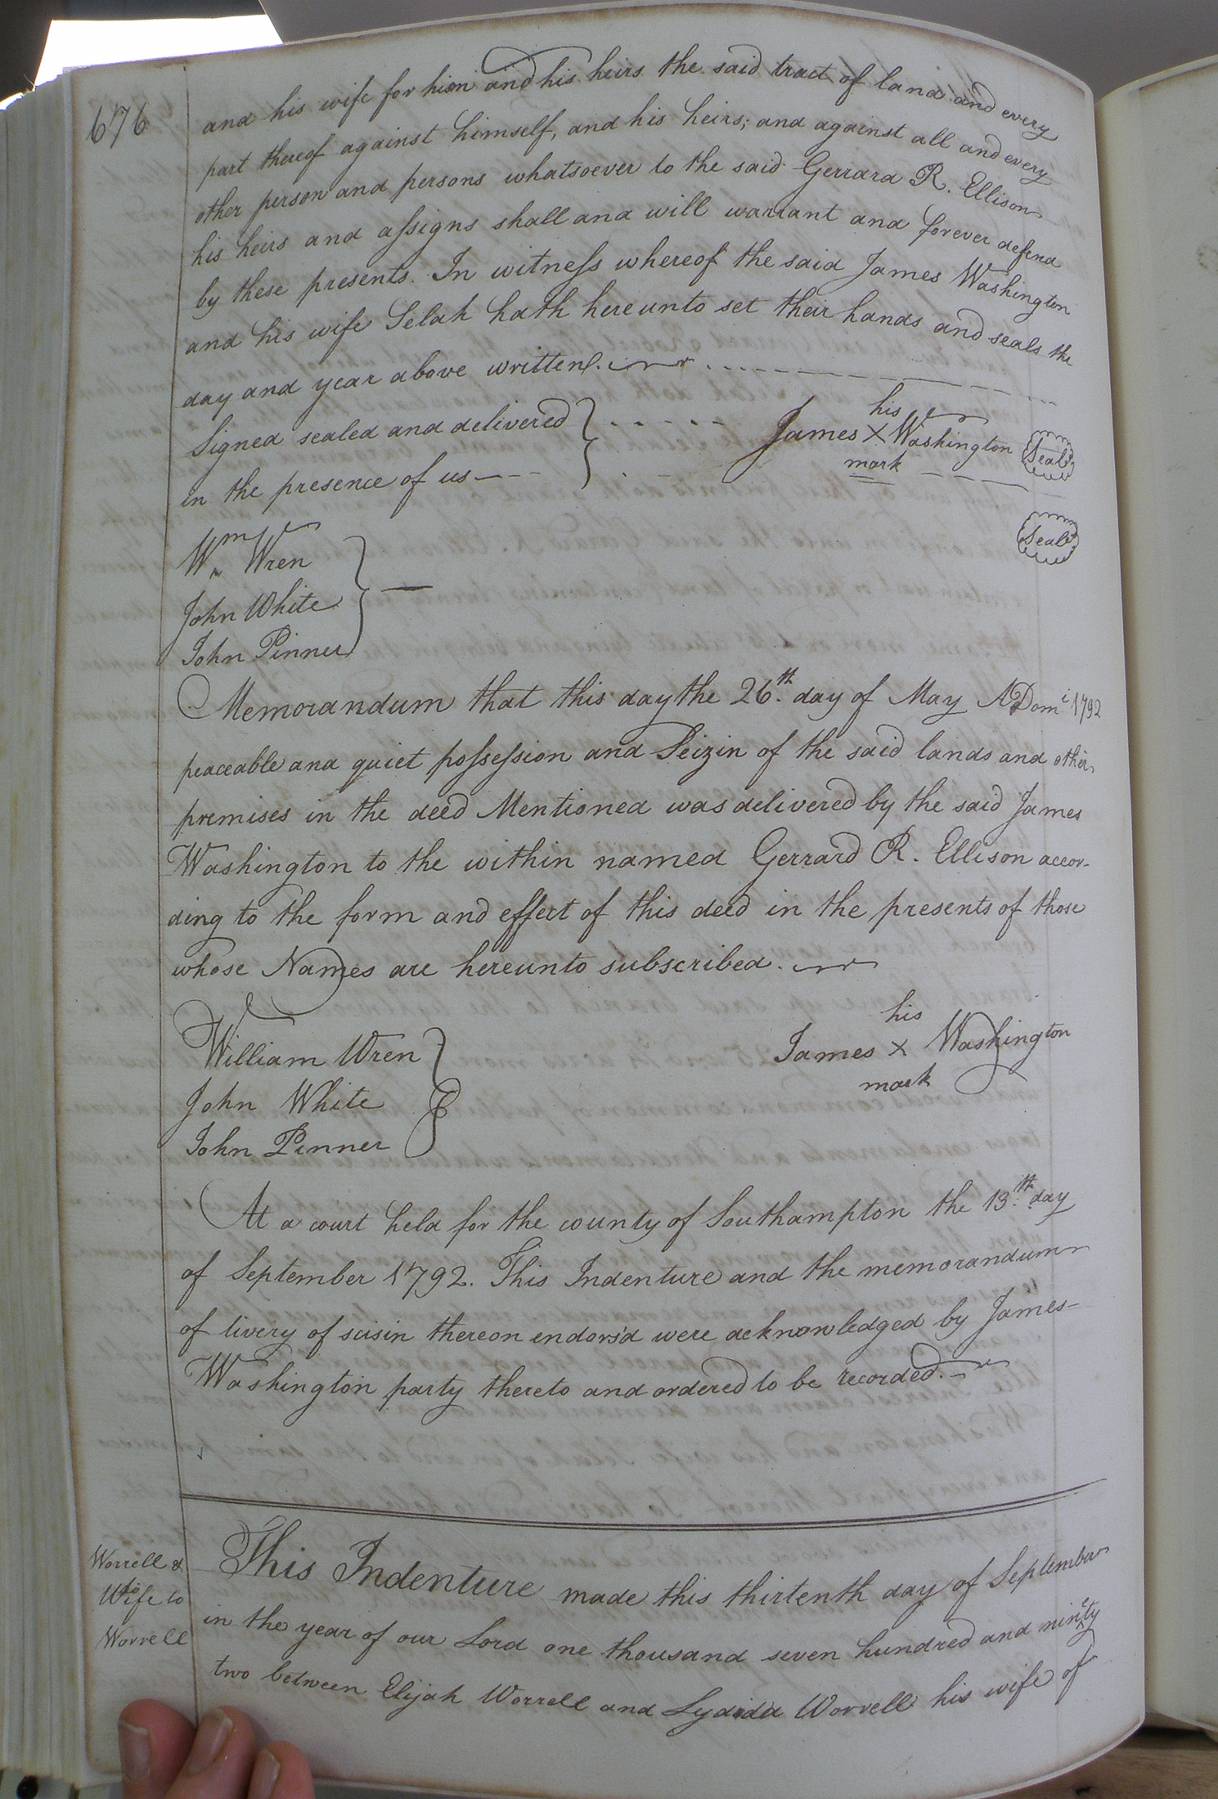 676
and his wife for him and his heirs the said tract of land and every
part thereof against himself, and his heirs; and against all and every
other person and persons whatsoever to the said Gerrard R. Ellison
his heirs and assigns shall and will warrant and forever defend
by these presents. In witness whereof the said James Washington
and his wife Selah hath hereunto set their hands and seals the
day and year above written.
Signed sealed and delivered
in the presence of us
his
James X Washington Seal
mark
Seal
Wm Wren
John White
John Pinner
Memorandum that this day the 26th day of May A Domi 1792
peaceable and quiet possession and Seizin of the said lands and other
premises in the deed Mentioned was delivered by the said James
Washington to the within named Gerrard R. Ellison accor-
ding to the form and effect of this deed in the presents of those
whose Names are hereunto subscribed.
William Wren
John White
John Pinner
his
James X Washington
mark
At a court held for the county of Southampton the 13th day
of September 1792. This Indenture and the memorandum
of livery of seisin thereon endors'd were acknowledged by James
Washington party thereto and ordered to be recorded.
Worrell &
Wife to
Worrell
This Indenture made this thirtenth day of September
in the year of our Lord one thousand seven hundred and ninety
two between Elijah Worrell and Lydida Worrell his wife of